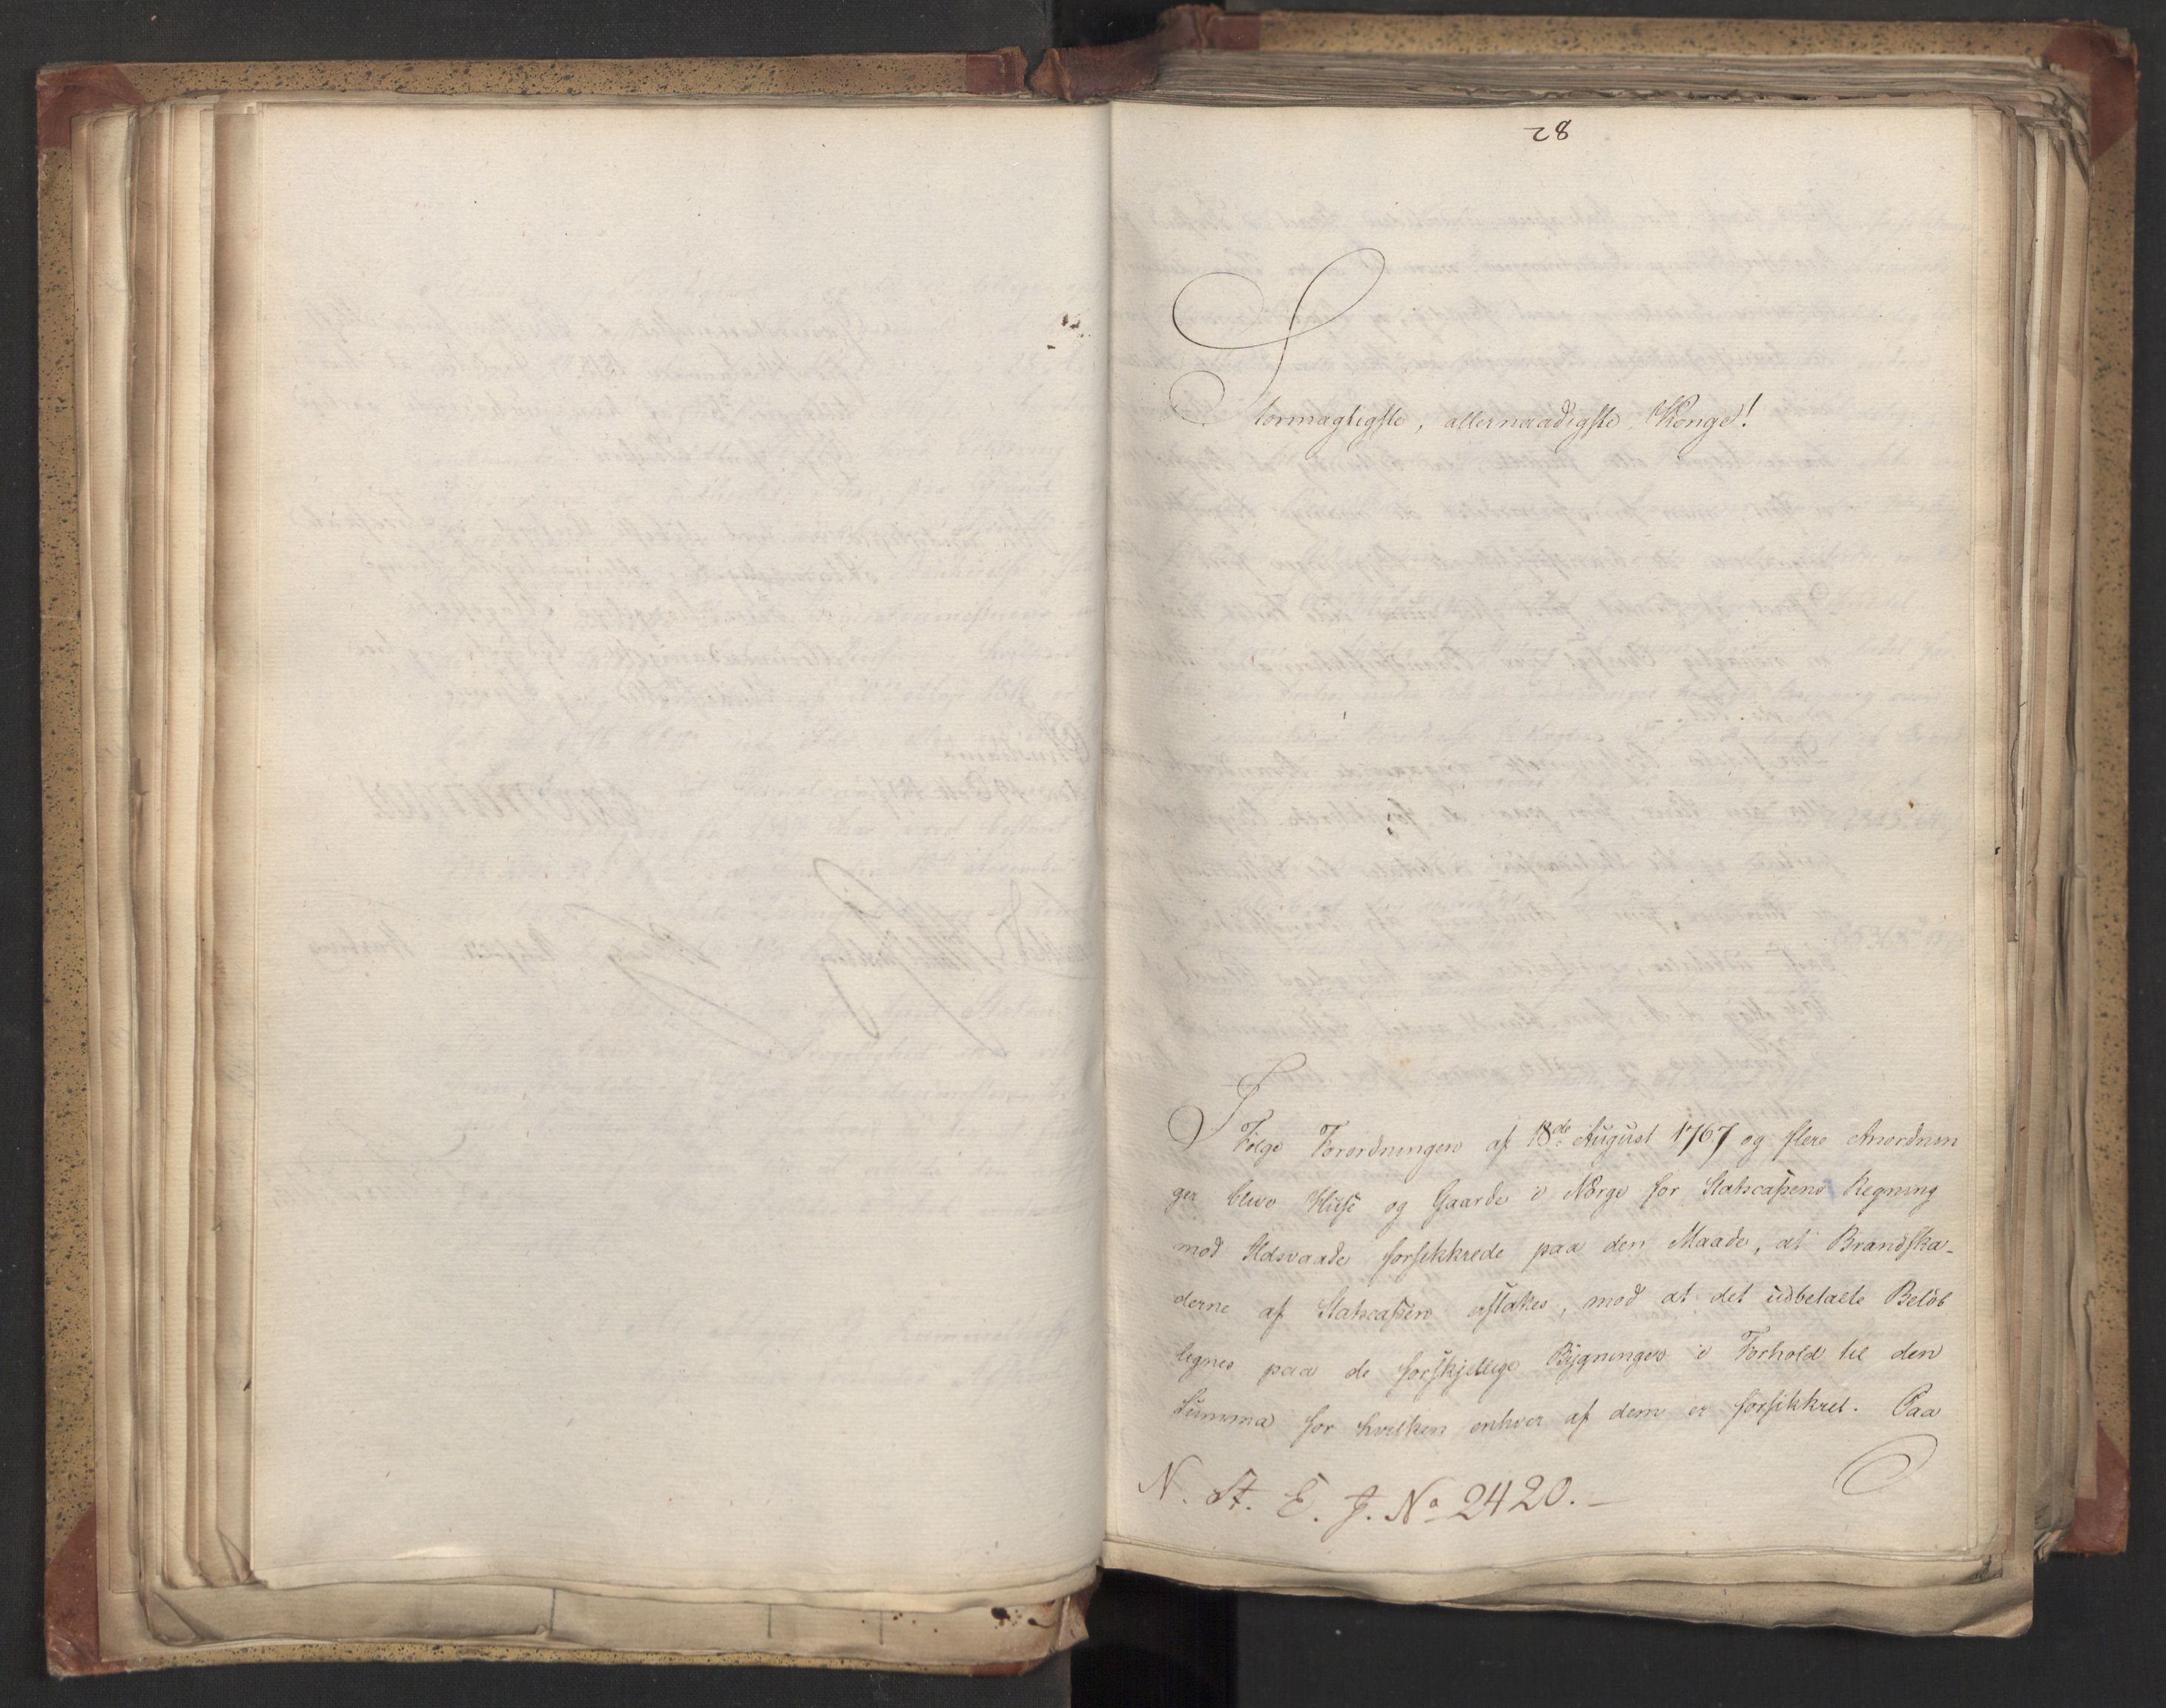 28
Stormægtigste, allernaadigste Konge!
I Følge Forordningen af 18de August 1767 og flere Anordnin
ger blive Huse og Gaarde i Norge for Statscassens Regning
mod Ildsvaade forsikkrede paa den Maade, at Brandska-
derne af Statscassen erstattes, mod at det udbetalte Beløb
lignes paa de forskjellige Bygninger i Forhold til den
Summa for hvilken enhver af dem er forsikkret. Paa
N. St. E. J. No 2420.-